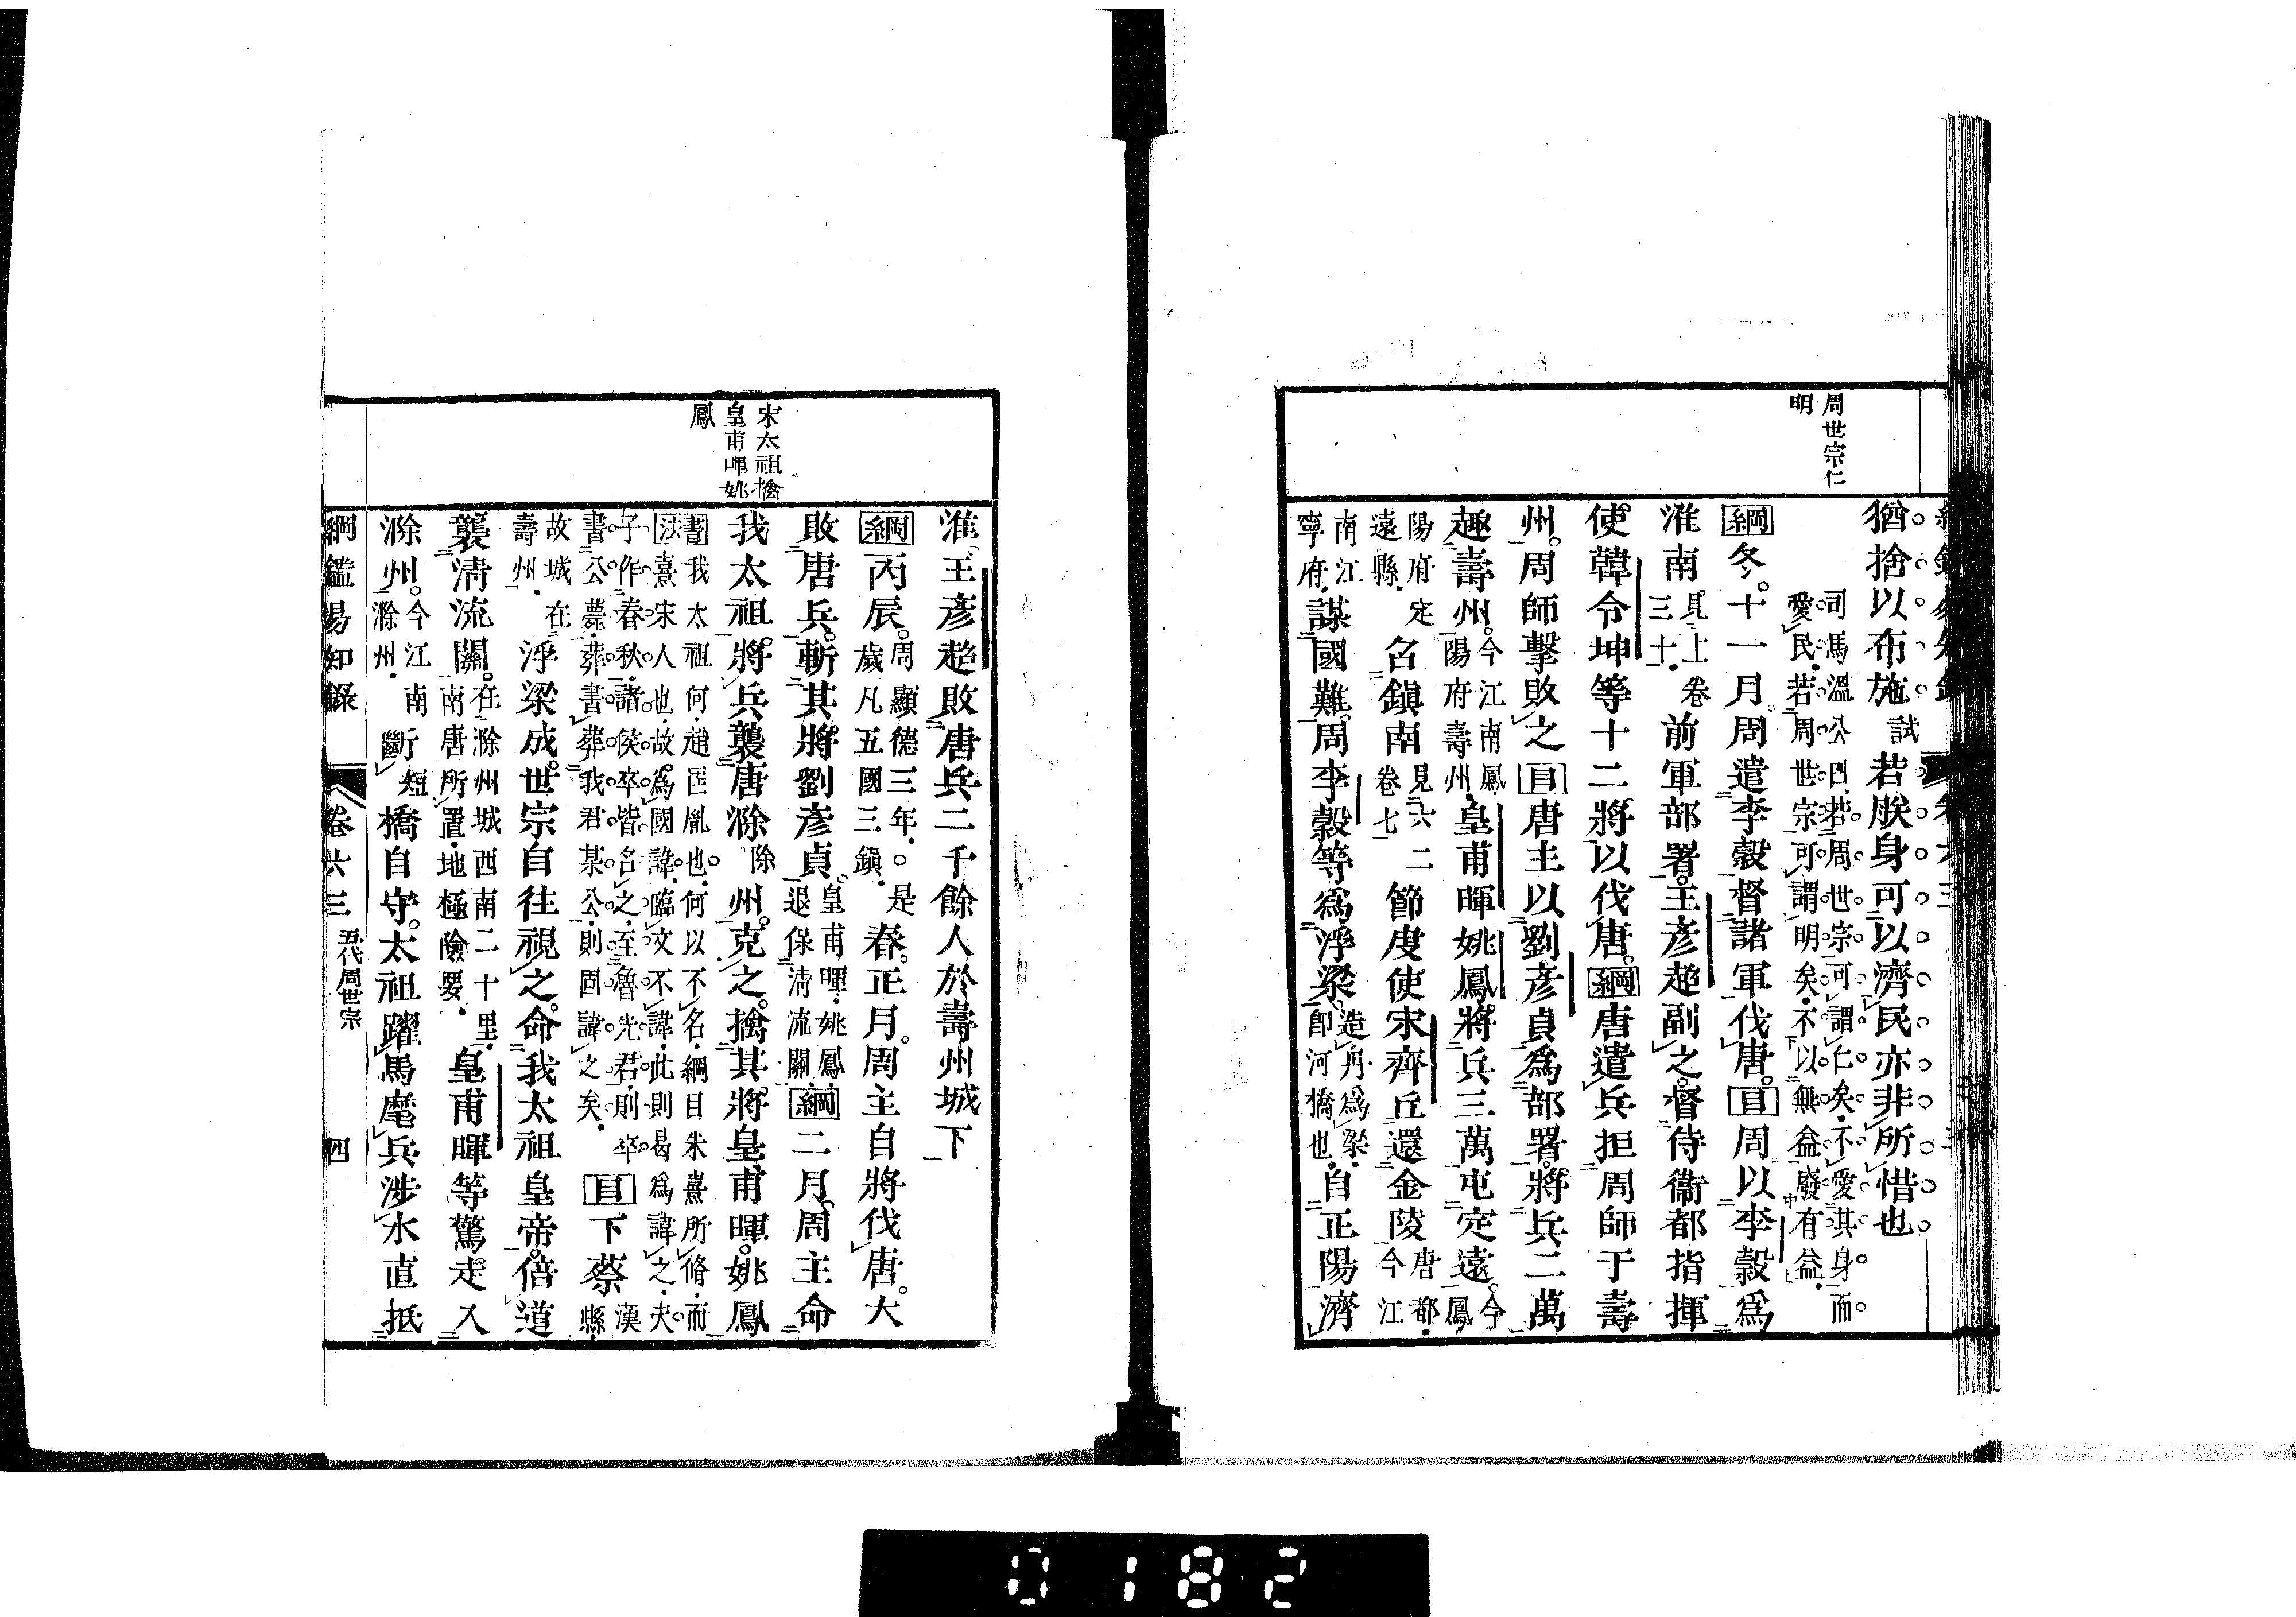 周世宗仁
明
猶捨以布施試若朕身可以濟民亦非所惜也
司馬溫公曰若周世宗可謂仁矣不愛其身而
愛民若周世宗可謂明矣不以無益廢有益
綱冬十一月周遣李穀督諸軍伐唐目周以李穀爲
淮南見上卷三十前軍部署王彥超副之督侍衞都指揮
使韓令坤等十二將以伐唐綱唐遣兵拒周師于壽
州周師擊敗之目唐主以劉彥貞爲部署將兵二萬
趣壽州今江南鳳陽府壽州皇甫暉姚鳳將兵三萬屯定遠今鳳
陽府定遠縣召鎮南見六二卷七節度使宋齊丘還金陵唐都今江
南江寧府謀國難周李穀等爲浮梁造舟爲梁卽河橋也自正陽濟
淮王彥超敗唐兵二千餘人於壽州城下
綱丙辰周顯德三年○是歲凡五國三鎮春正月周主自將伐唐大
敗唐兵斬其將劉彥貞皇甫暉姚鳳退保清流關綱二月周主命
宋太祖擒
皇甫暉姚
鳳
我太祖將兵襲唐滁除州克之擒其將皇甫暉姚鳳
書我太祖何趙匡胤也何以不名綱目朱熹所脩而
法熹宋人也故爲國諱臨文不諱此則曷爲諱之夫
子作春秋諸侯卒皆名之至魯先君則卒
書公薨葬書葬我君某公則固諱之矣
目下蔡漢縣故城在壽州浮梁成世宗自往視之命我太祖皇帝倍道
襲清流關在滁州城西南二十里南唐所置地極險要皇甫暉等驚走入
滁州今江南滁州斷短橋自守太祖躍馬麾兵涉水直抵
綱鑑易知錄 卷六三 五代周世宗 四
0182